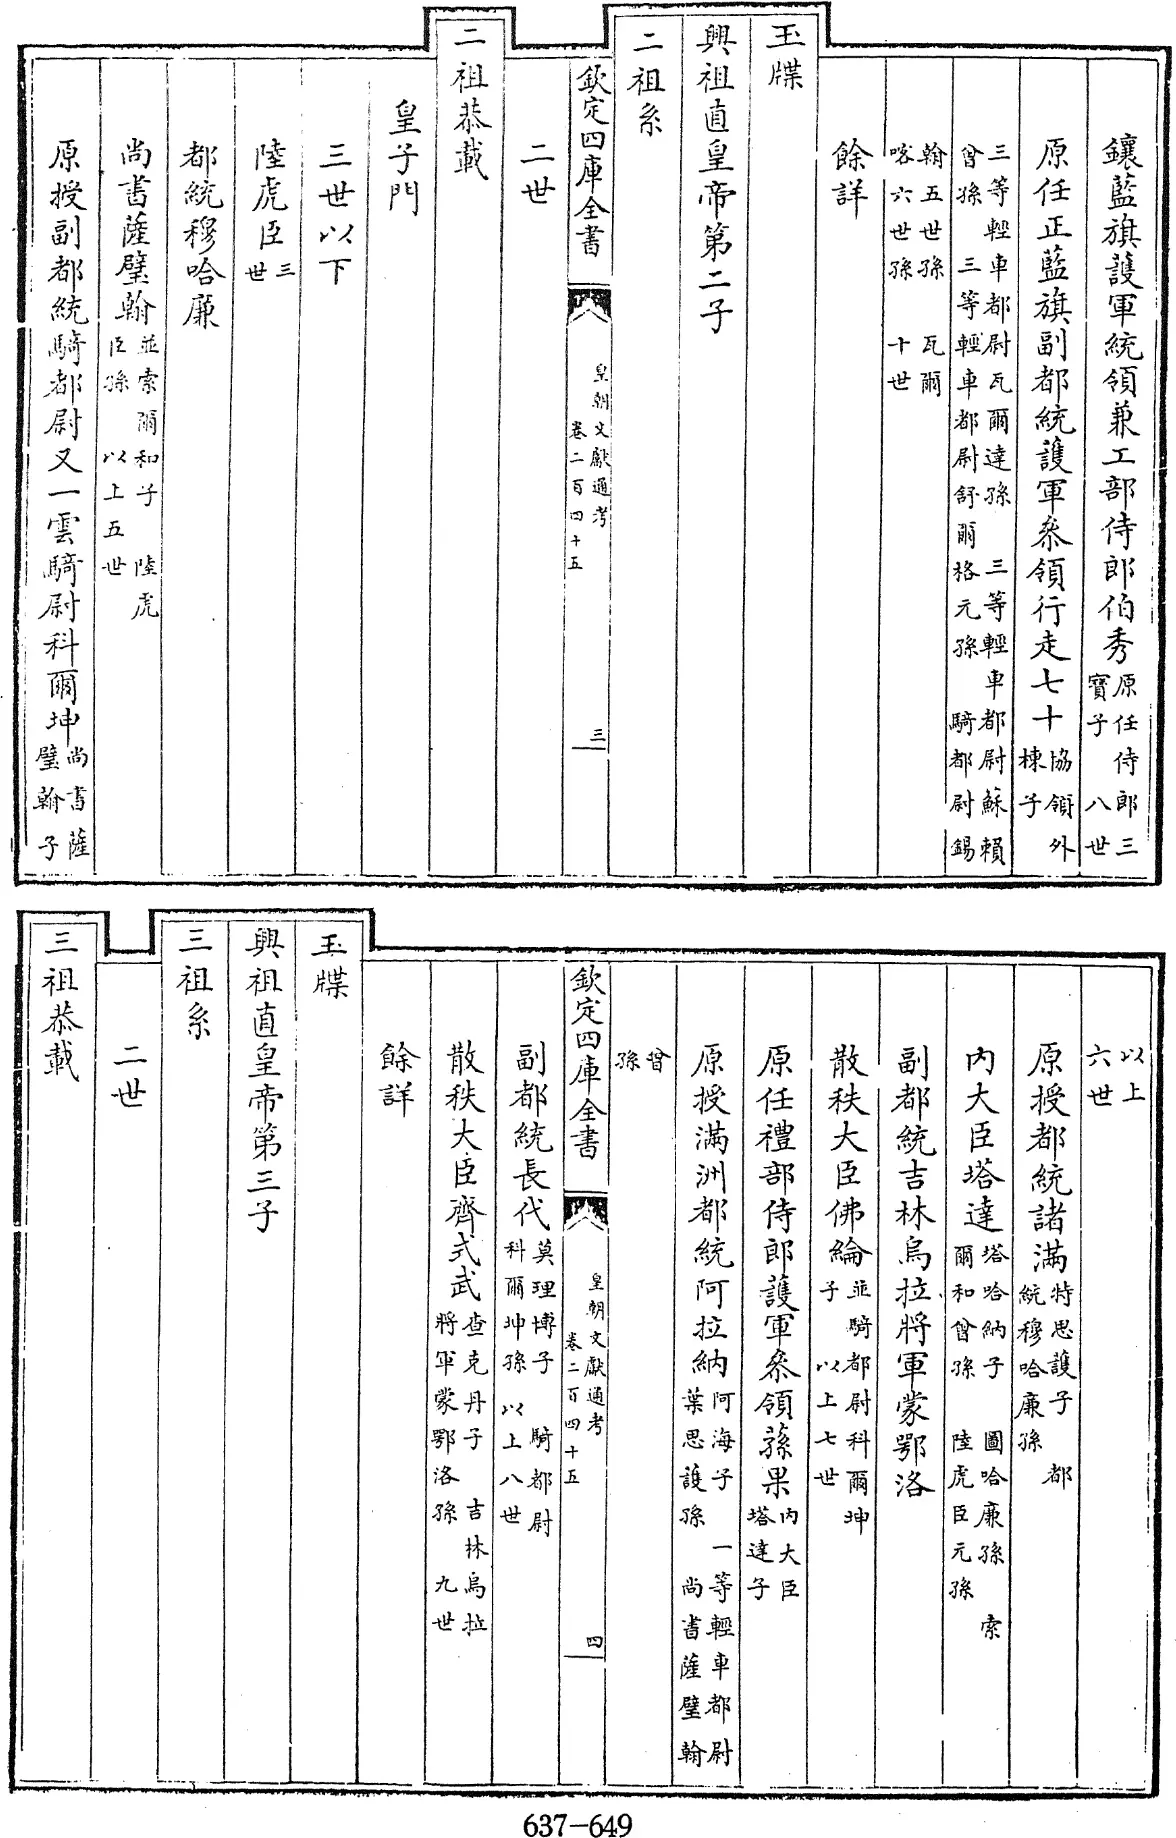 鑲藍旗護軍統領兼工部侍郎伯秀原任侍郎三
寶子　八世
原任正藍旗副都統護軍叅領行走七十協領外
棟子
三等輕車都尉瓦爾達孫　三等輕車都尉蘇賴
曾孫　三等輕車都尉舒爾格元孫　騎都尉錫
翰五世孫　瓦爾
喀六世孫　十世
餘詳
玉牒
興祖直皇帝第二子
二祖系
欽定四庫全書
皇朝文獻通考
卷二百四十五
三
二世
二祖恭載
皇子門
三世以下
陸虎臣三
世
都統穆哈廉
尚書薩璧翰並索爾和子　陸虎
臣孫　以上五世
原授副都統騎都尉又一雲騎尉科爾坤尚書薩
璧翰子
以上
六世
原授都統諸滿特思護子　都
統穆哈廉孫
內大臣塔達塔哈納子　圖哈廉孫　索
爾和曾孫　陸虎臣元孫
副都統吉林烏拉將軍蒙鄂洛
散秩大臣佛綸並騎都尉科爾坤
子　以上七世
原任禮部侍郎護軍叅領蓀果內大臣
塔達子
原授滿洲都統阿拉納阿海子　一等輕車都尉
葉思護孫　尚書薩璧翰
曾
孫
欽定四庫全書
皇朝文獻通考
卷二百四十五
四
副都統長代莫理博子　騎都尉
科爾坤孫　以上八世
散秩大臣齊式武查克丹子　吉林烏拉
將軍蒙鄂洛孫　九世
餘詳
玉牒
興祖直皇帝第三子
三祖系
二世
三祖恭載
637-649